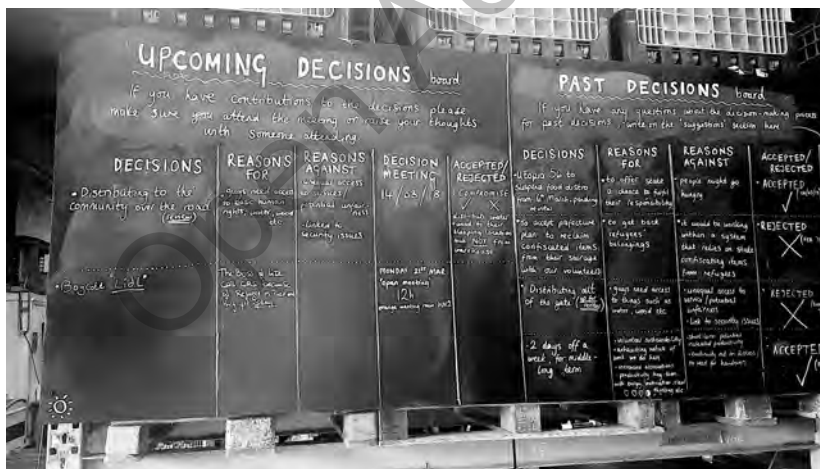 UPCOMING DECISIONS board
If you have contributions to the decisions please
make sure you attend the meeting or raise your thoughts
with someone attending.
DECISIONS
• Distributing to the
community over the road
(renew)
• Boycott Lidl
REASONS
FOR
• guys need access
to basic human
rights, water, wood
etc
REASONS
AGAINST
• unequal access
to services/
potential unfair-
ness
• Linked to
security issues
DECISION
MEETING
14/03/18
MONDAY 21ST MAR
'open meeting'
12h
ACCEPTED/
REJECTED
COMPROMISE
sleeping location
and NOT from
warehouse
PAST DECISIONS board
If you have any questions about the decision-making process
for past decisions, write on the 'suggestions' section here
DECISIONS
• Utopia 56 to
suspend food distro
from 6th March, pending
• To accept prefecture
plan to reclaim
confiscated items
from their storage
with our volunteers
• Distributing out
of the gate
• 2 days off a
week for middle-
long term
REASONS
FOR
• to offer state
a chance to fulfil
their responsibility
• to get back
refugees
belongings
• guys need access
to things such as
water, wood etc
• volunteer sustainability
• exhausting nature of
work we do here
REASONS
AGAINST
• people might go
hungry
• it would be working
within a system
that relies on state
confiscating items
from refugees
• unequal access to
service/potential
unfairness
• Link to security issues
• short term potential
reduced productivity
ACCEPTED/
REJECTED
ACCEPTED
REJECTED
REJECTED
ACCEPTED